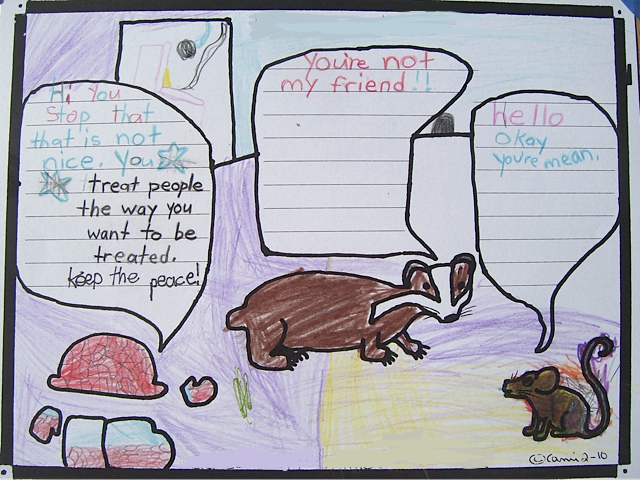 Hi You
Stop that
that is not
nice. You
treat people
the way you
want to be
treated.
keep the peace!
You're not
my friend!!
hello
Okay
you're mean.
©Cami 2-10